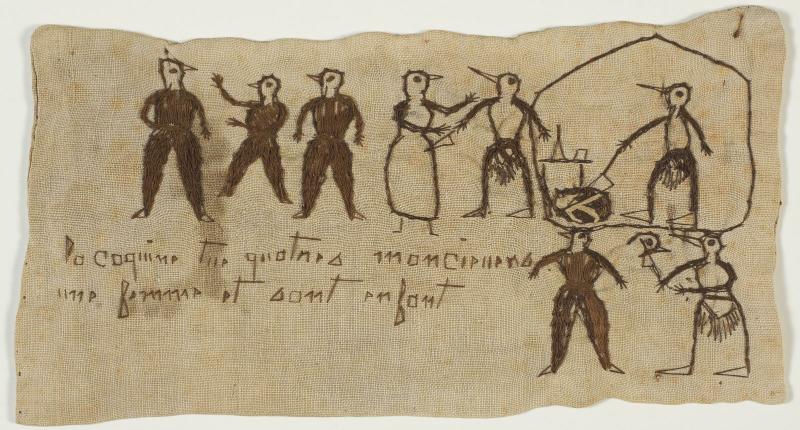 Po coquine tue quatres moncieuers
une femme et sont enfont